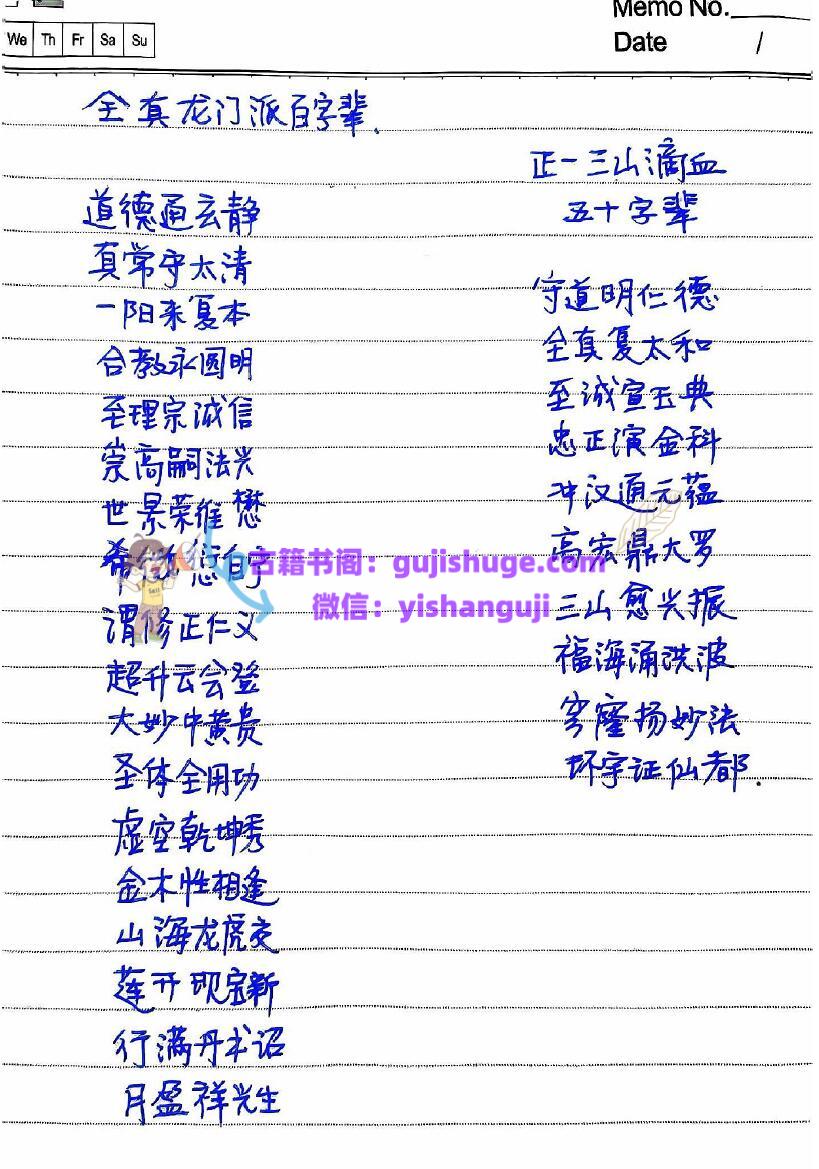 Memo No.
We Th Fr Sa Su
Date /
全真龙门派百字辈.
道德通玄静
真常守太清
一阳来复本
合教永圆明
至理宗诚信
崇高嗣法兴
世景荣维懋
希 自宁
古籍书阁：gujishuge.com
微信：yishanguji
谓修正仁义
超升云会登
大妙中黄贵
圣体全用功
虚空乾坤秀
金木性相逢
山海龙虎交
莲开现宝新
行满丹书诏
月盈祥光生
正一三山滴血
五十字辈
守道明仁德
全真复太和
至诚宣玉典
忠正演金科
冲汉通元蕴
高宏鼎大罗
三山愈兴振
福海涌洪波
穹窿扬妙法
环宇证仙都.